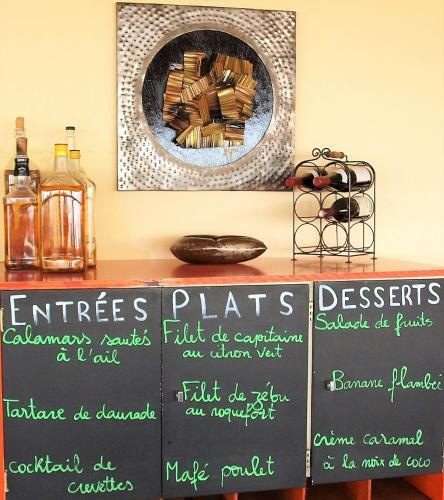 ENTRÉES
Calamars sautés
à l'ail
Tartare de daurade
cocktail de
crevettes
PLATS
Filet de capitaine
au citron vert
Filet de zébu
au roquefort
Mafé poulet
DESSERTS
Salade de fruits
Banane flambée
crème caramel
à la noix de coco